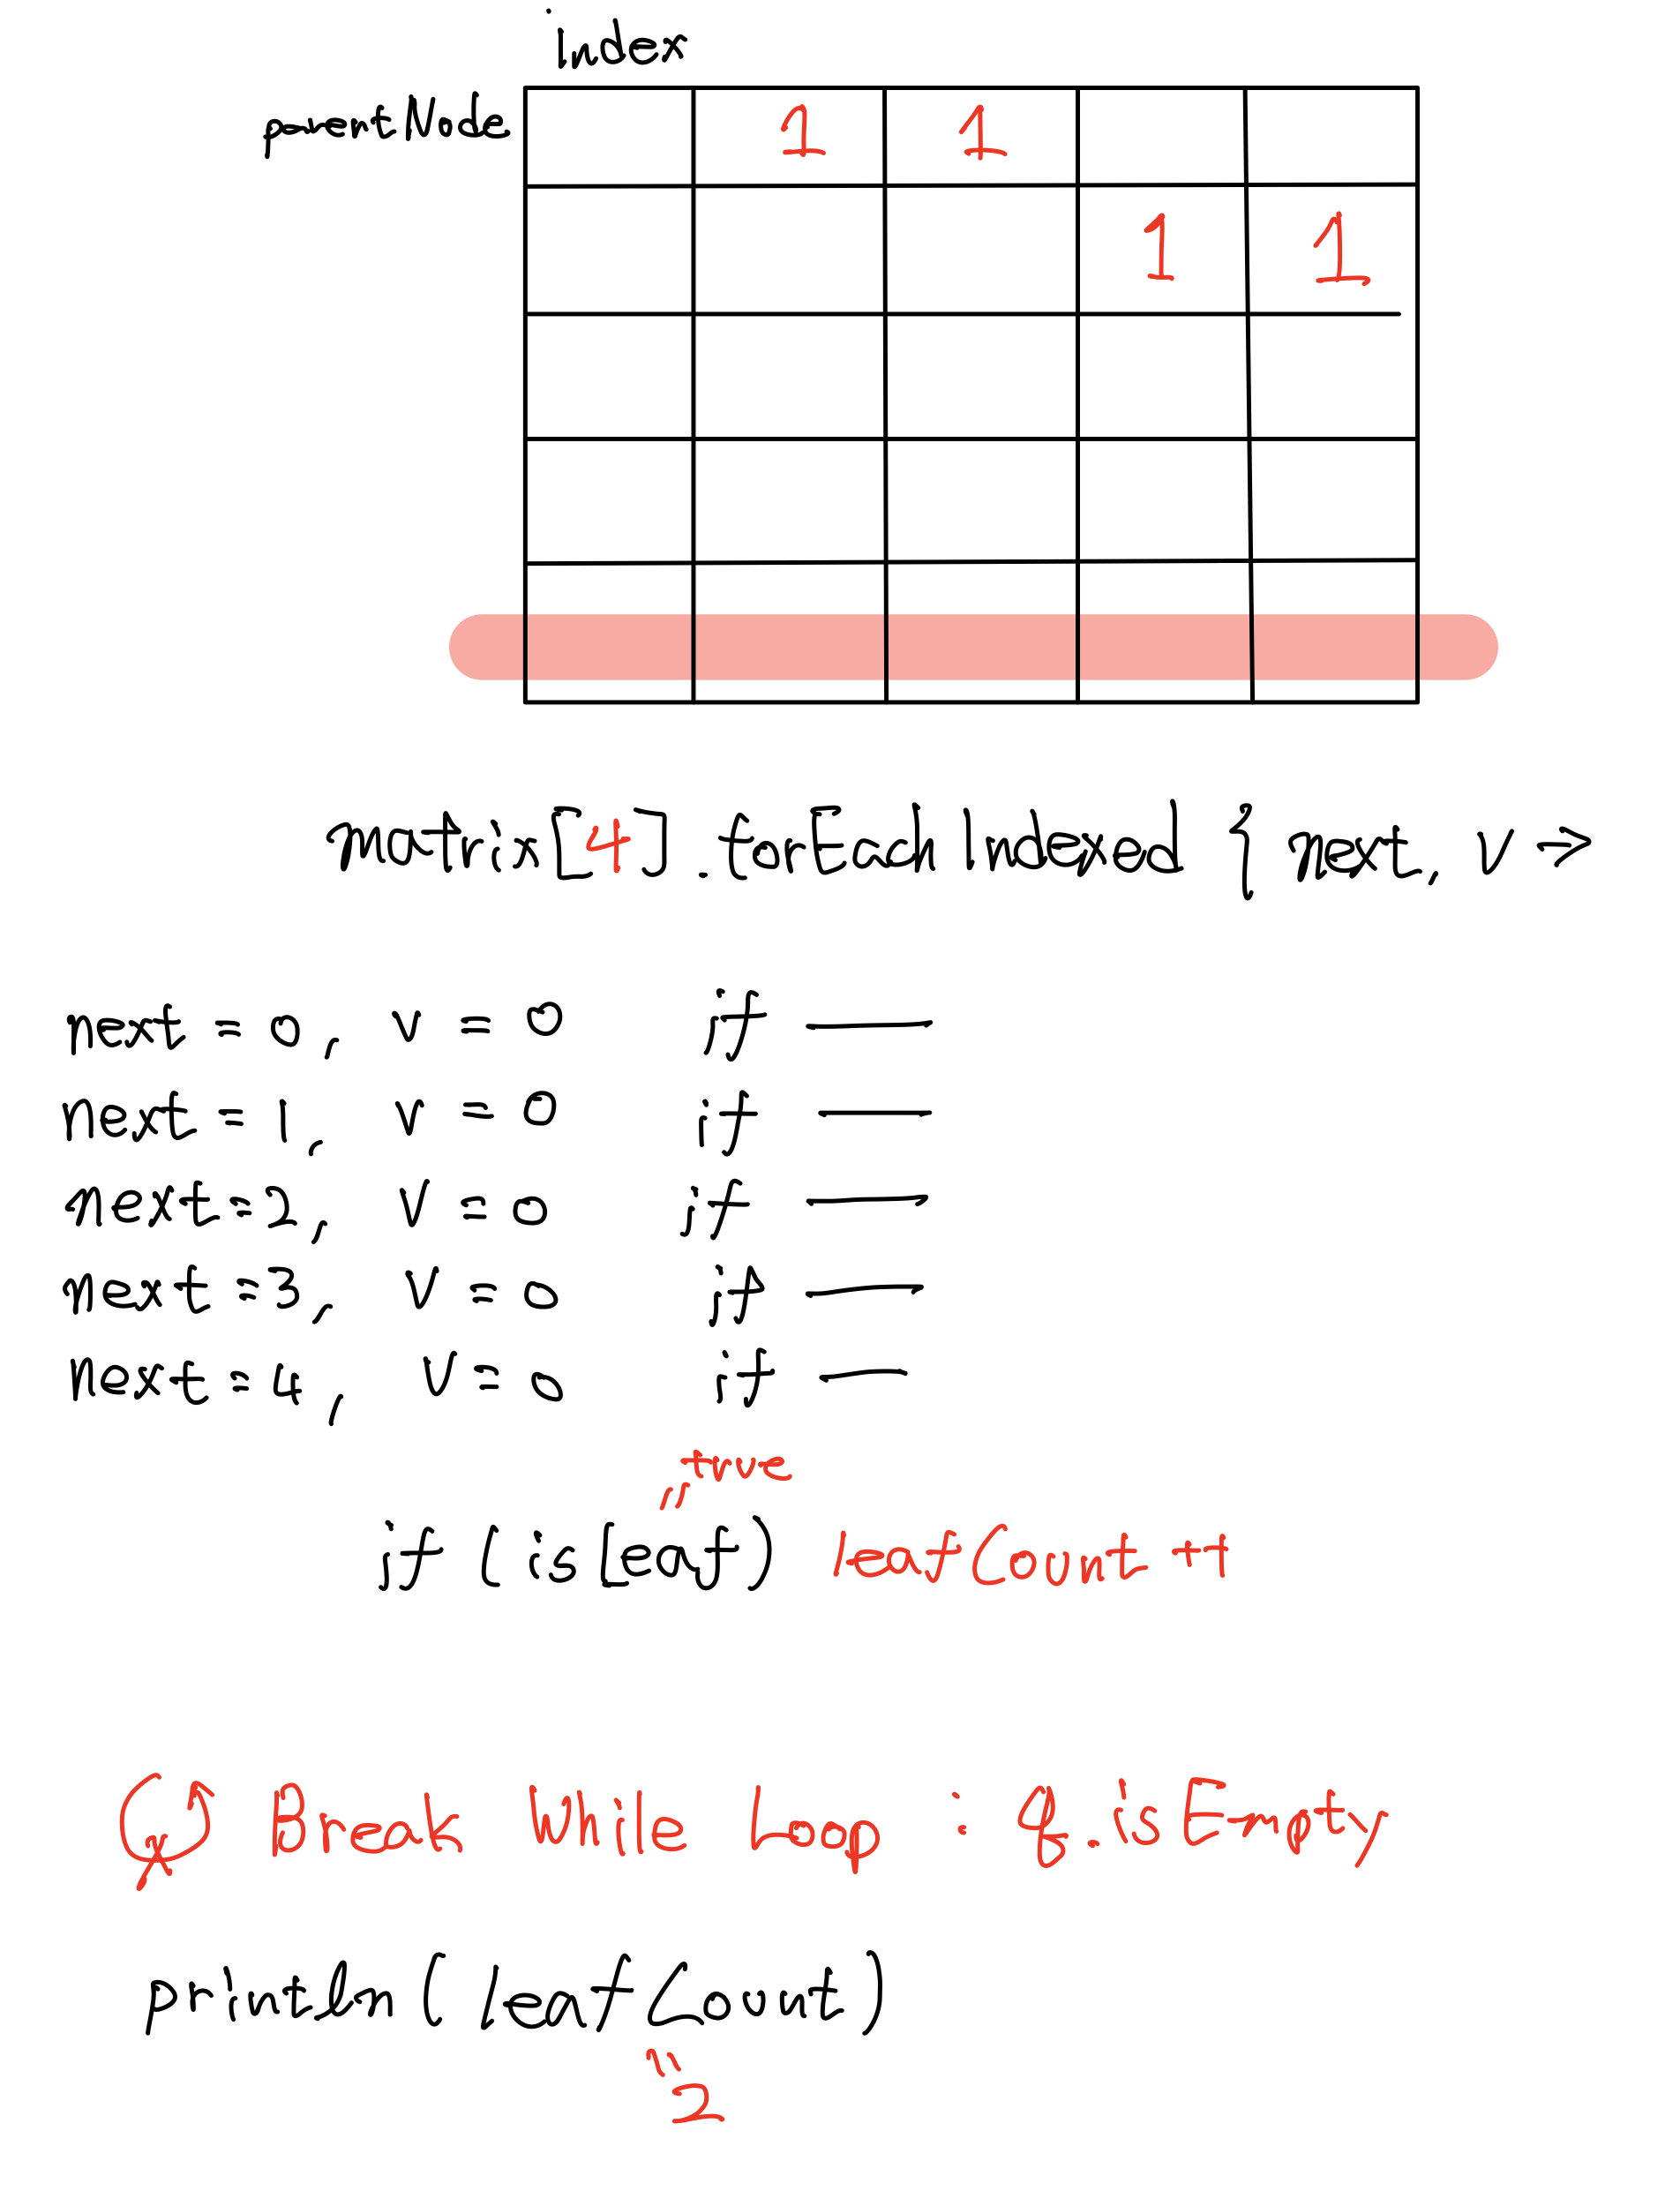 index
parentNode
1 1
1 1
matrix[4].forEachIndexed { next, v →
next = 0, v = 0 if —
next = 1, v = 0 if —
next = 2, v = 0 if —
next = 3, v = 0 if —
next = 4, v = 0 if —
true
if (isLeaf) leafCount ++
Break While Loop : q.isEmpty
println( leafCount )
2